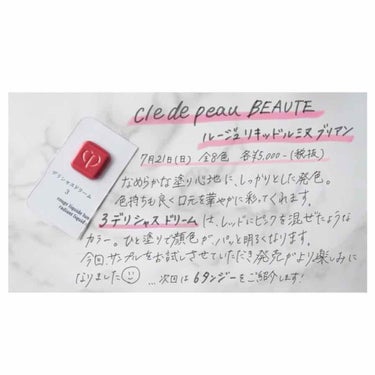 cle de peau BEAUTE
ルージュリキッドルミヌブリアン
7月21日(日) 全8色 各¥5,000-(税抜)
なめらかな塗り心地に、しっかりとした発色。
色持ちも良く口元を華やかに彩ってくれます。
3デリシャスドリームは、レッドにピンクを混ぜたような
カラー。ひと塗りで顔色が、パッと明るくなります。
今回、サンプルをお試しさせていただき発売がより楽しみに
なりました
...次回は6タンジーをご紹介します!
デリシャスドリーム
3
rouge liquide lum
radiant liquid